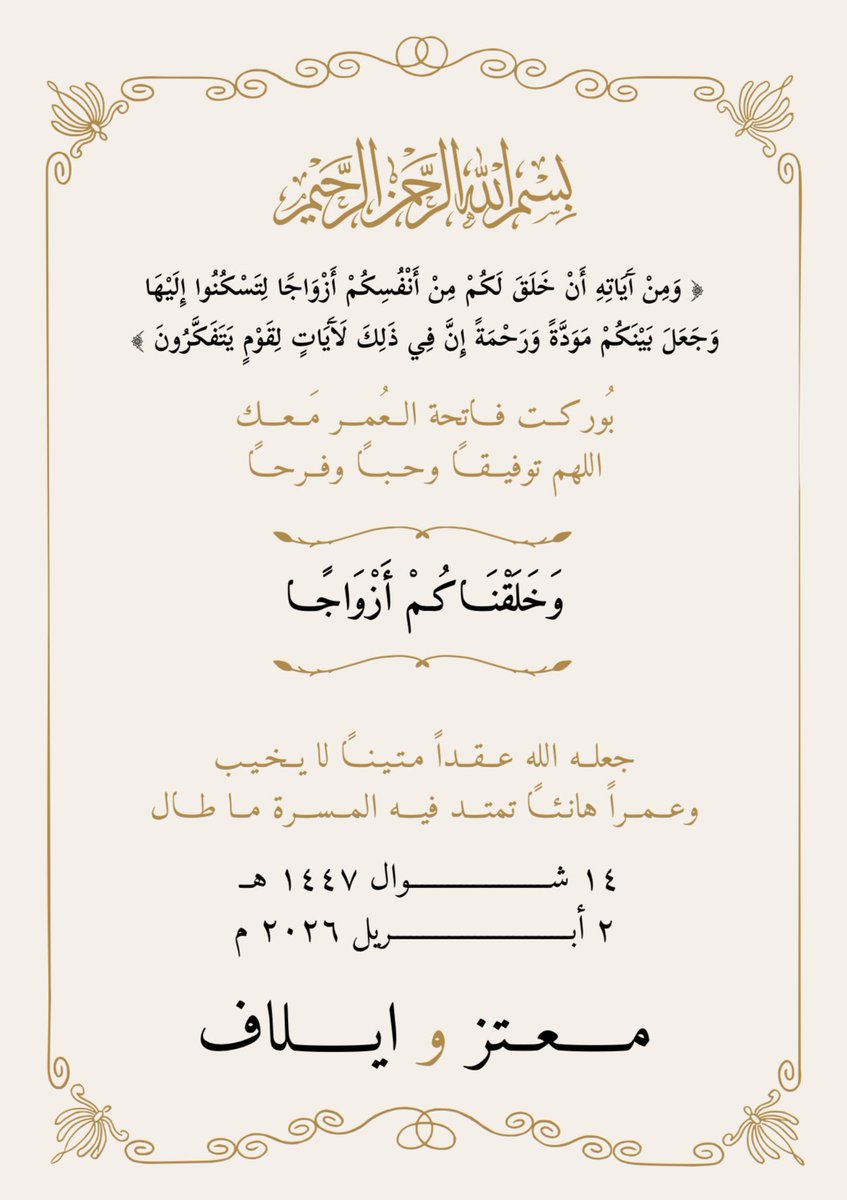 بِسْمِ اللهِ الرَّحْمٰنِ الرَّحِيْمِ
﴿ وَمِنْ آيَاتِهِ أَنْ خَلَقَ لَكُمْ مِنْ أَنْفُسِكُمْ أَزْوَاجًا لِتَسْكُنُوا إِلَيْهَا
وَجَعَلَ بَيْنَكُمْ مَوَدَّةً وَرَحْمَةً إِنَّ فِي ذَلِكَ لَآيَاتٍ لِقَوْمٍ يَتَفَكَّرُونَ ﴾
بُوركـت فـاتحة الـعُمـر مَـعـك
اللهم توفيـقـاً وحـبـاً وفـرحـاً
وَخَلَقْنَـاكُـمْ أَزْوَاجًـا
جعلـه الله عـقـداً متـينـاً لا يـخـيـب
وعـمـراً هانئـاً تمتـد فيـه المـسـرة مـا طـال
١٤ شـــــوال ١٤٤٧ هـ
٢ أبـــــريل ٢٠٢٦ م
مـــعـتز و ايـــلاف